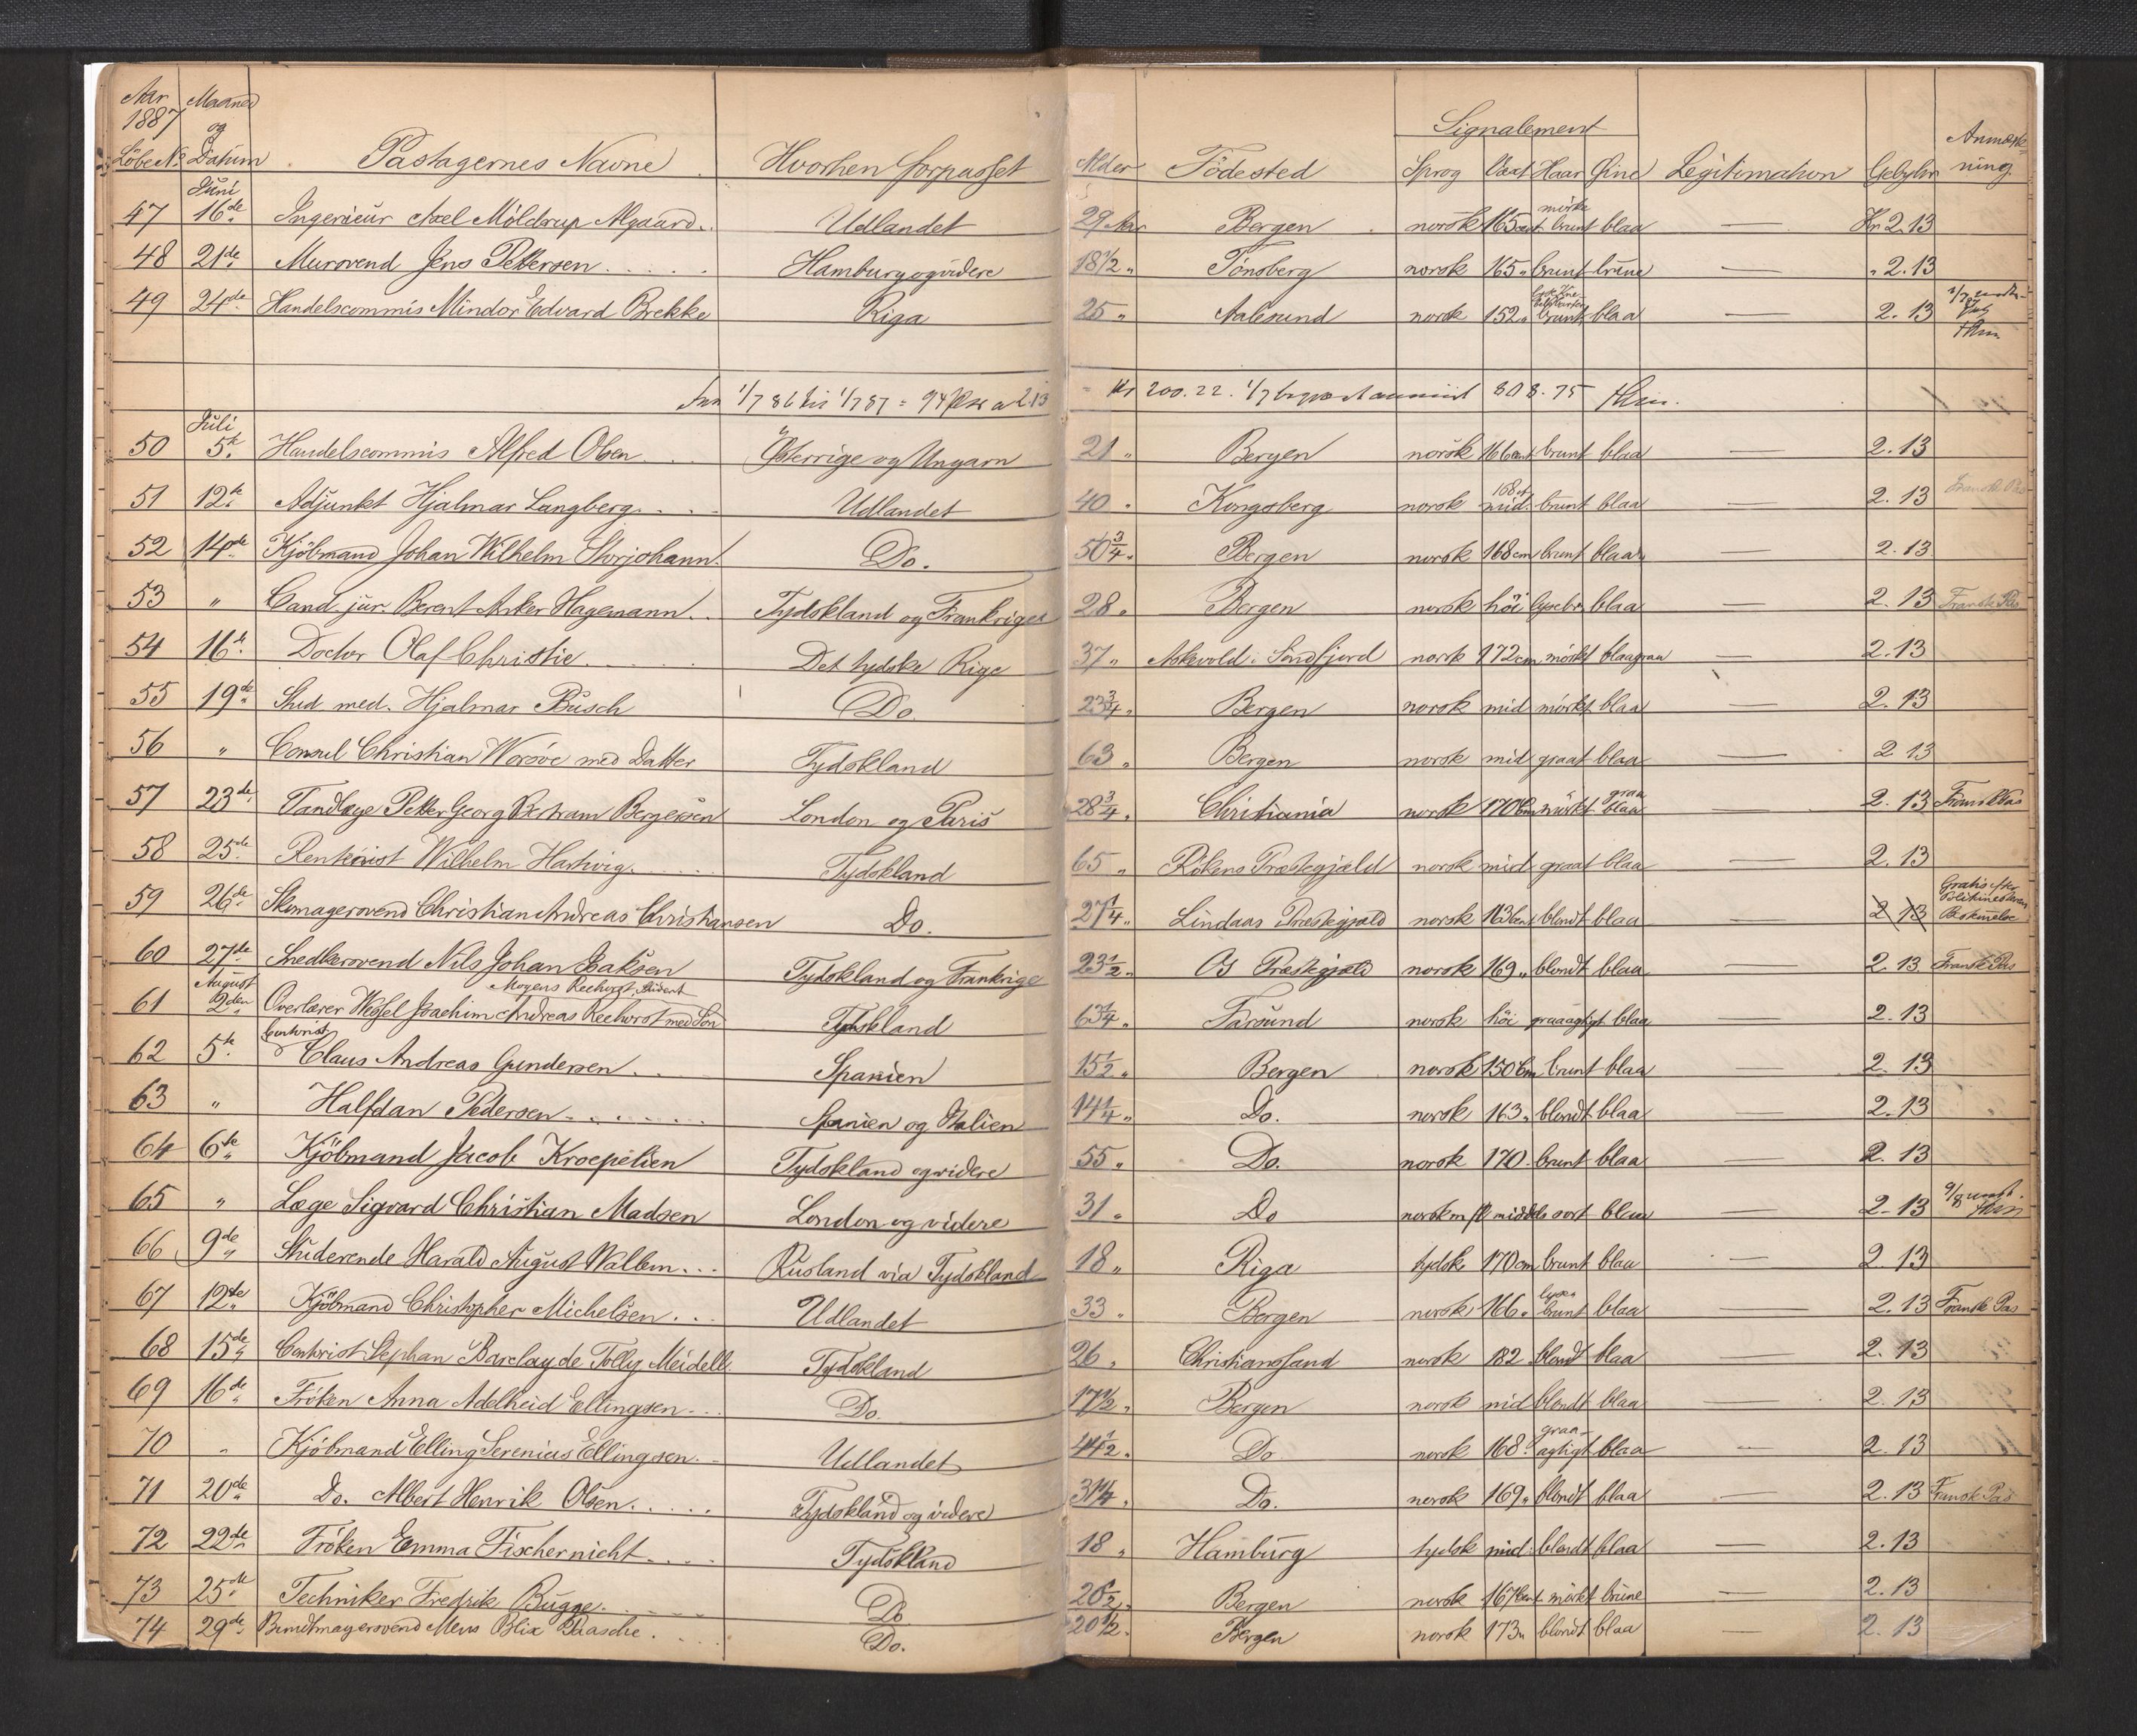 Aar 1887 Maaned og
Löbe No Datum Passagernes Navne Hvorhen forpasset Alder Födested Signalement Sprog Vext Haar Öine Legitimation Gebyhr Anmærkning
Juni
47 16de Ingenieur Axel Möldrup Algaard Udlandet 29 Aar Bergen norsk 165 cent mörke brunt blaa — Kr 2.13
48 21de Mursvend Jens Pettersen Hamburg og videre 18 1/2 " Tönsberg norsk 165 " brunt brune — " 2.13
49 24de Handelscommis Mindor Edvard Brekke Riga 25 " Aalesund norsk 152 " brunt blaa — 2.13
Fra 1/7 86 til 1/7 87 = 94 Pas a 2.13 = Kr 200.22. 808.75
Juli
50 5te Handelscommis Alfred Olsen Österrige og Ungarn 21 " Bergen norsk 166 cent brunt blaa — 2.13
51 12te Adjunkt Hjalmar Langberg Udlandet 40 " Kongsberg norsk 168 ct mid. brunt blaa — 2.13 Fransk Pas
52 14de Kjöbmand Johan Wilhelm Storjohann Do. 50 3/4 " Bergen norsk 168 cm brunt blaa — 2.13
53 " Cand. jur. Berent Anker Hagemann Tydskland og Frankriget 28 " Bergen norsk höi lysebr. blaa — 2.13 Fransk Pas
54 16de Doctor Olaf Christie Det tydske Rige 37 " Askevold i Söndfjord norsk 172 cm mörkt blaagraa — 2.13
55 19de Stud. med. Hjalmar Busch Do. 23 3/4 " Bergen norsk mid mörkt blaa — 2.13
56 " Consul Christian Worsöe med Datter Tydskland 63 " Bergen norsk mid graat blaa — 2.13
57 23de Tandlæge Petter Georg Bertram Bergersen London og Paris 28 3/4 " Christiania norsk 170 Cm mörkt graa blaa — 2.13 Fransk Pas
58 25de Rentenist Wilhelm Hartwig Tydskland 65 " Rökens Præstegjæld norsk mid graat blaa — 2.13
59 26de Skomagersvend Christian Andreas Christiansen Do. 27 1/4 " Lindaas Præstegjæld norsk 163 Cent blondt blaa — 2.13 Gratis efter Politimesterens Beskivelse
60 27de Snedkersvend Nils Johan Isaksen Tydskland og Frankrige 23 1/2 " Os Præstegjæld norsk 169 " blondt blaa — 2.13 Fransk Pas
August Mogens Reehorst, Student
61 2den Overlærer Wessel Joachim Andreas Reehorst med Sön Tydskland 63 1/4 " Farsund norsk höi graaagtigt blaa — 2.13
62 5te Contorist Claus Andreas Gundersen Spanien 15 1/2 " Bergen norsk 150 Cm brunt blaa — 2.13
63 " Halfdan Pedersen Spanien og Italien 14 1/4 " Do. norsk 163 " blondt blaa — 2.13
64 6te Kjöbmand Jacob Kroepelien Tydskland og videre 55 " Do. norsk 170 " brunt blaa — 2.13
65 " Læge Sigvard Christian Madsen London og videre 31 " Do norsk m fl middels sort blaa — 2.13
66 9de Studerende Harald August Wallem Rusland via Tydskland 18 " Riga tydsk 170 cm brunt blaa — 2.13
67 12te Kjöbmand Christopher Michelsen Udlandet 33 " Bergen norsk 166 " lyse brunt blaa — 2.13 Fransk Pas
68 15de Contorist Stephan Barclay de Tolly Meidell Tydskland 26 " Christianssand norsk 182 blondt blaa — 2.13
69 16de Fröken Anna Adelheid Ellingsen Do. 17 1/2 " Bergen norsk mid blondt blaa — 2.13
70 " Kjöbmand Elling Serenius Ellingsen Udlandet 44 1/2 " Do norsk 168 " graaagtigt blaa — 2.13
71 20de Do. Albert Henrik Olsen Tydskland og videre 31 1/4 " Do. norsk 169 " blondt blaa — 2.13 Fransk Pas
72 22de Fröken Emma Fischernicht Tydskland 18 " Hamburg tydsk mid: blondt blaa — 2.13
73 25de Techniker Fredrik Bugge Do 20 1/2 " Bergen norsk 167 Cent mörkt brune — 2.13
74 29de Bundtmagersvend Mens Blix Paasche Do. 20 1/2 " Bergen norsk 173 " blondt blaa — 2.13